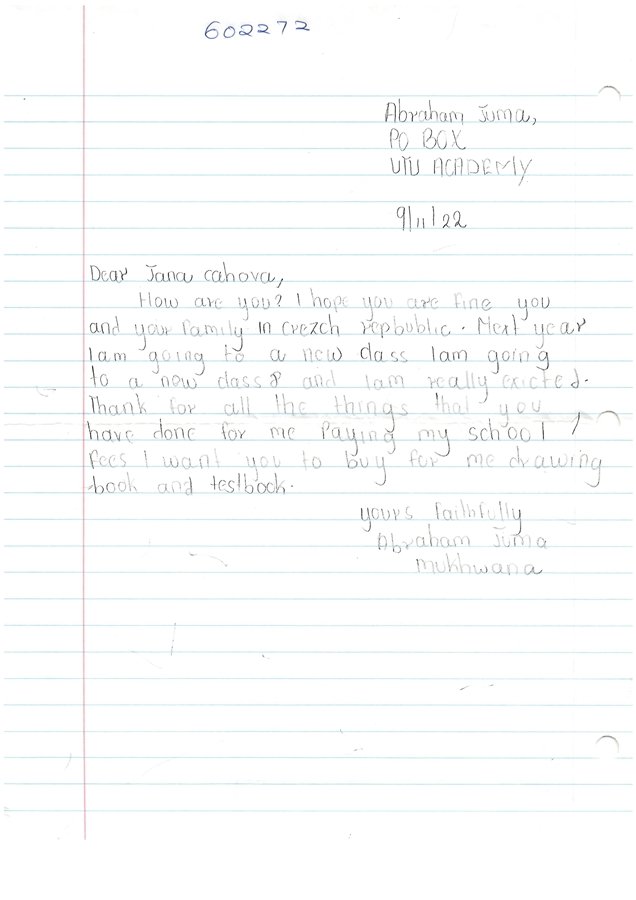 602272
Abraham Juma,
PO BOX
UTU ACADEMY
9/11/22
Dear Jana cahova,
How are you? I hope you are fine you
and your family in crezch repbublic. Next year
Iam going to a new class Iam going
to a new class 8 and Iam really exicted.
Thank for all the things that you
have done for me Paying my school
fees I want you to buy for me drawing
book and testbook.
yours faithfully
Abraham Juma
Mukhwana